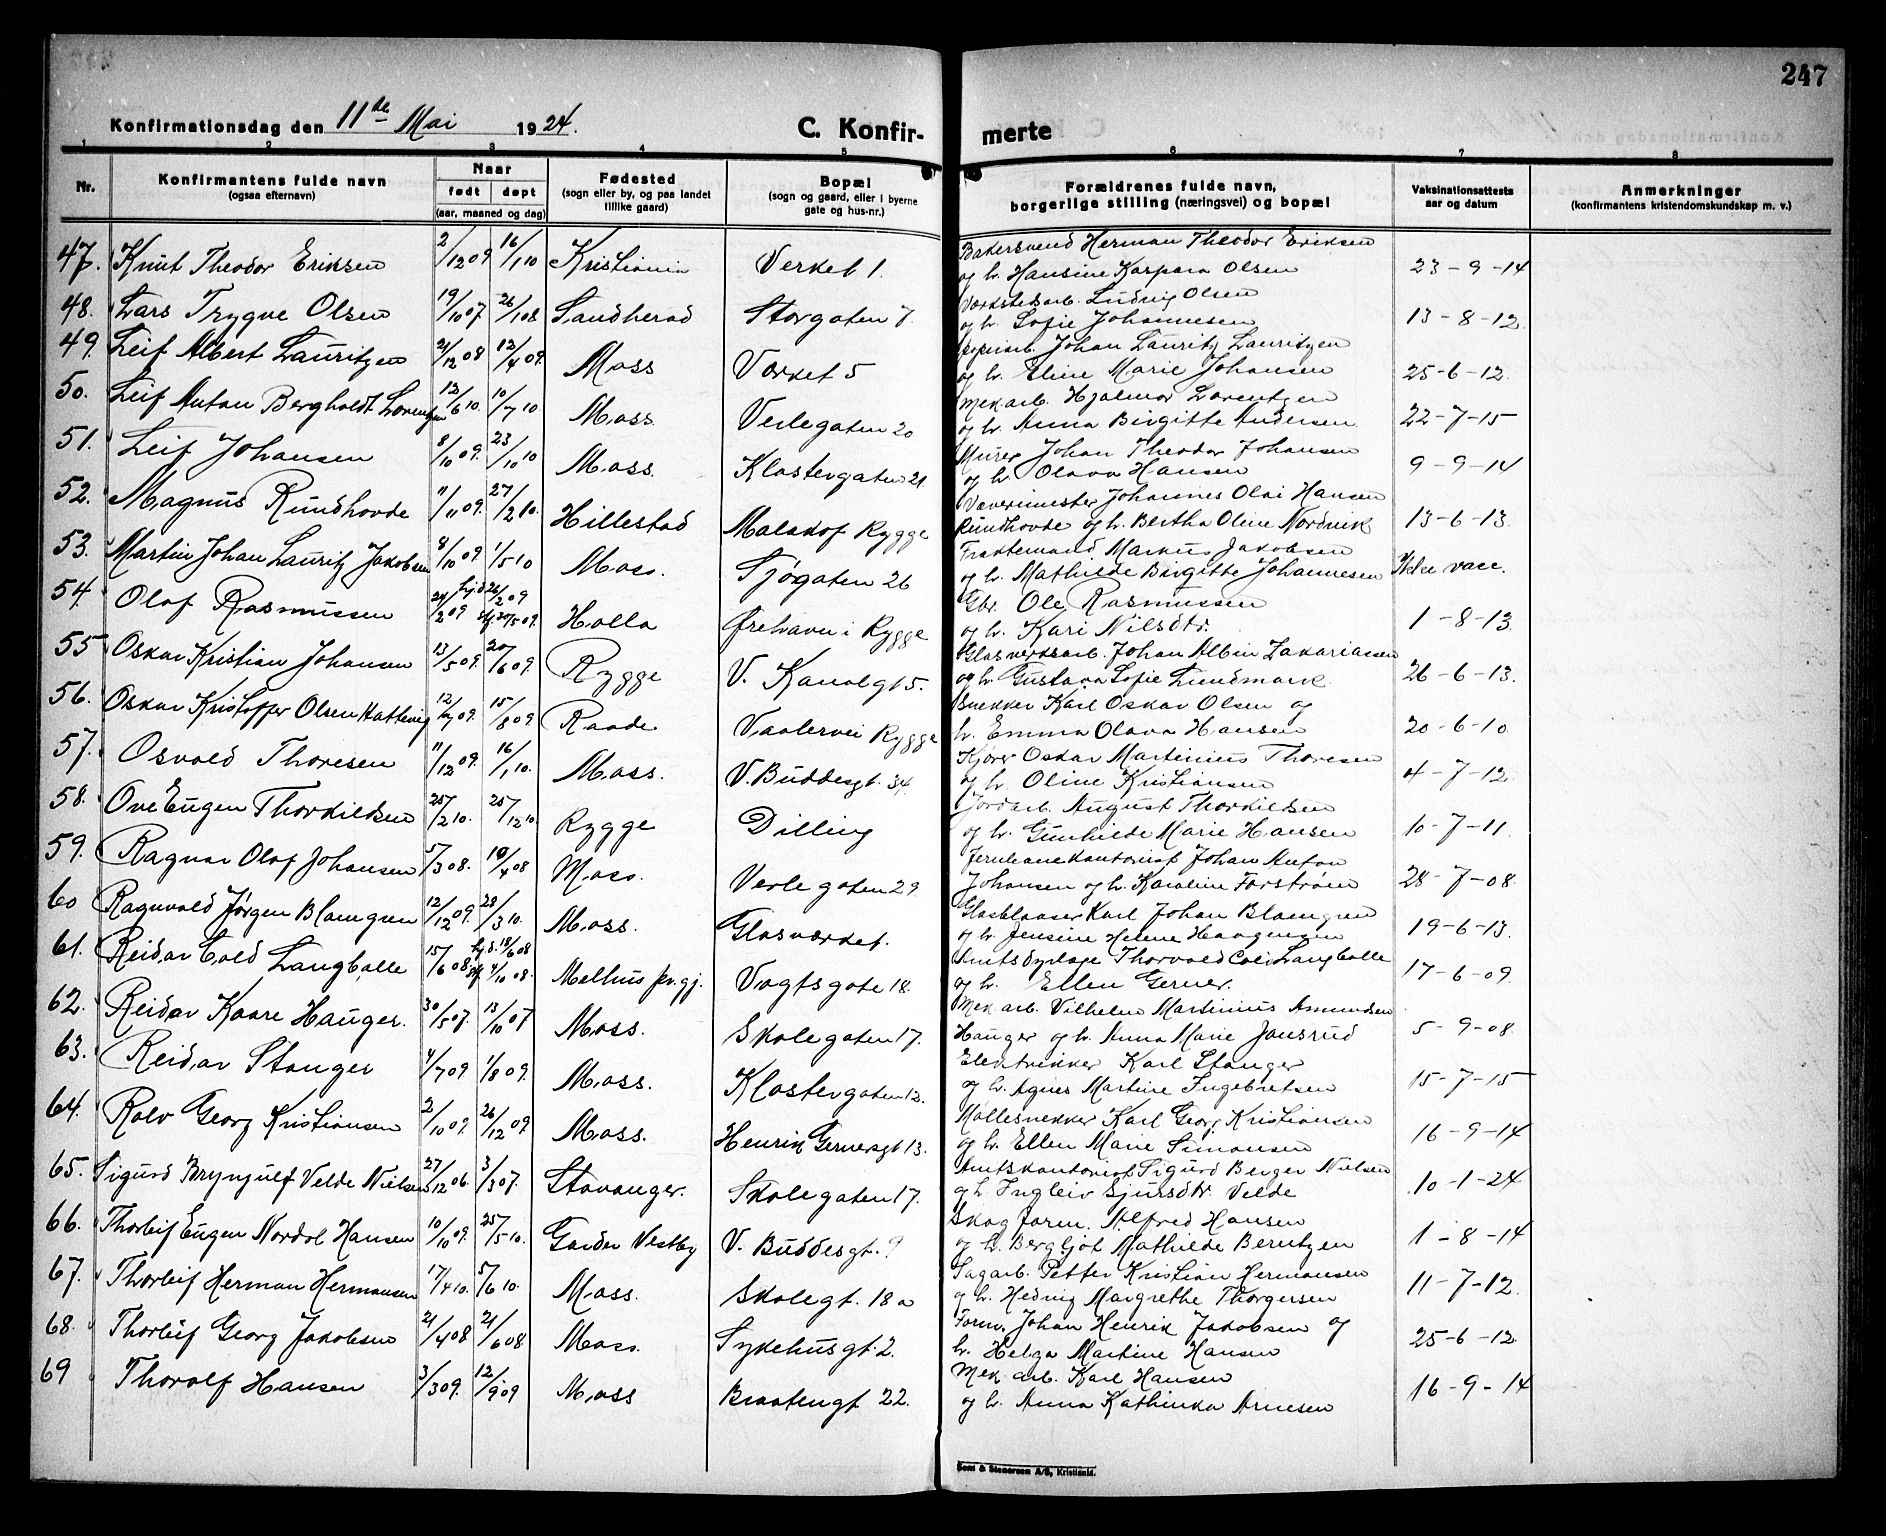 247
Konfirmationsdag den 11te Mai 1924.
C. Konfirmerte
1 2 3 4 5 6 7 8
Nr. Konfirmantens fulde navn (ogsaa efternavn) Naar født døpt (aar, maaned og dag) Fødested (sogn eller by, og paa landet tillike gaard) Bopæl (sogn og gaard, eller i byerne gate og hus-nr.) Forældrenes fulde navn, borgerlige stilling (næringsvei) og bopæl Vaksinationsattests aar og datum Anmerkninger (konfirmantens kristendomskundskap m. v.)
47. Knut Theodor Eriksen 2/12 09 16/1 10 Kristiania Verket 1. Bakersvend Herman Theodor Eriksen
og h. Hansine Kaspara Olsen 23-9-14
48. Lars Trygve Olsen 19/10 07 26/1 08 Sandherad Storgaten 7 Værkstedsarb. Ludvig Olsen
og h. Sofie Johannesen 13-8-12.
49. Leif Albert Lauritzen 21/12 08 12/4 09. Moss Værket 5 Papirarb. Johan Lauritz Lauritzen
og h. Eline Marie Johansen 25-6-12.
50. Leif Anton Bergholdt Lorentzen 12/6 10. 10/7 10 Moss Verlegaten 20 Mek.arb. Hjalmar Lorentzen
og h. Anna Birgitte Andersen. 22-7-15
51. Leif Johansen 8/10 09. 23/10 10 Moss. Klostergaten 21. Murer Johan Theodor Johansen
og h. Olava Hansen 9-9-14
52. Magnus Rundhovde 11/11 09. 27/2 10. Hillestad Malakof Rygge Vævermester Johannes Olai Hansen
Rundhovde og h. Bertha Oline Nordvik 13-6-13.
53. Martin Johan Lauritz Jakobsen 8/10 09. 1/5 10 Moss. Sjøgaten 26 Fragtemand Markus Jakobsen
og h. Mathilde Birgitte Johannesen Ikke vacc.
54. Olaf Rasmussen 24/2 09 hjd 26/2 09 stf. 30/5 09. Holla Ørehavn i Rygge Gbr. Ole Rasmussen
og h. Kari Nilsdtr. 1-8-13.
55 Oskar Kristian Johansen 13/5 09. 20/6 09. Rygge V. Kanalgt 5. Glasverksarb. Johan Albin Zakariassen
og h. Gustava Sofie Lundmark 26-6-13.
56. Oskar Kristoffer Olsen 12/7 09. 15/8 09 Raade Vaalervei Rygge Snekker Karl Oskar Olsen og
h. Emma Olava Hansen 20-6-10.
57. Osvald Thoresen 11/12 09. 16/1 10. Moss. V. Buddesgt. 34. Kjører Oskar Martinius Thoresen
og h. Oline Kristiansen 4-7-12.
58. Ove Eugen Thorkildsen 25/2 10. 25/12 10 Rygge Dilling Jordarb. August Thorkildsen
og h. Gunhilde Marie Hansen 10-7-11.
59. Ragnar Olaf Johansen 5/3 08. 10/4 08 Moss. Verlegaten 29 Jernbanekontorist Johan Anton
Johansen og h. Karoline Forstrøm 28-7-08.
60 Ragnvald Jørgen Blomgren 12/12 09. 28/3 10. Moss. Glasværket. Glasblaaser Karl Johan Blomgren
og h. Jensine Helene Haagensen 19-6-13.
61. Reidar Cold Langballe 15/6 08. hjd. 18/6 08 stf. 4/10 08. Melhus pr.gj. Vogtsgate 18. Amtsdyrlæge Thorvald Cold Langballe
og h. Ellen Gerner. 17-6-09.
62. Reidar Kaare Hauger. 30/5 07. 13/10 07 Moss. Skolegaten 17. Mek arb. Vilhelm Martinius Amundsen
Hauger og h. Anna Marie Jonsrud 5-9-08.
63. Reidar Stanger 4/7 09. 1/8 09. Moss. Klostergaten 12. Elektrikker Karl Stanger
og h. Agnes Martine Ingebretsen 15-7-15
64. Rolv Georg Kristiansen 2/10 09. 26/12 09. Moss. Henrik Gernersgt 13. Møllesnekker Karl Georg Kristiansen
og h. Ellen Marie Simonsen 16-9-14
65. Sigurd Brynjulf Velde Nielsen 27/12 06. 3/3 07. Stavanger. Skolegaten 17. Amtskontorist Sigurd Berger Nielsen
og h. Ingleiv Sjursdtr. Velde 10-1-24
66. Thorleif Eugen Nordal Hansen 10/10 09. 25/5 10. Garder Vestby V. Buddesgt. 9 Skog form. Alfred Hansen
og h. Bergljot Mathilde Berntzen 1-8-14
67. Thorleif Herman Hermansen 17/4 10. 5/6 10. Moss. Skolegt. 18 a Sagarb. Petter Kristian Hermansen
og h. Hedvig Margrethe Thorgersen 11-7-12.
68. Thorleif Georg Jakobsen 21/4 08 21/6 08. Moss. Sykehusgt. 2. Form. Johan Henrik Jakobsen og
h. Helga Martine Hansen 25-6-12
69 Thoralf Hansen 3/3 09. 12/9 09 Moss Braatengt 22. Mek. arb. Karl Hansen
og h. Anna Kathinka Arnesen 16-9-14
Sem & Stenersen A/S, Kristiania.